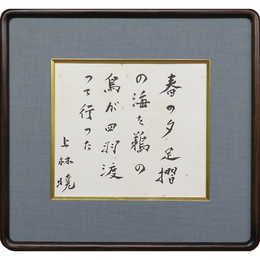 春の夕足摺
の海を鵜の
鳥が四羽渡
つて行った
上林暁